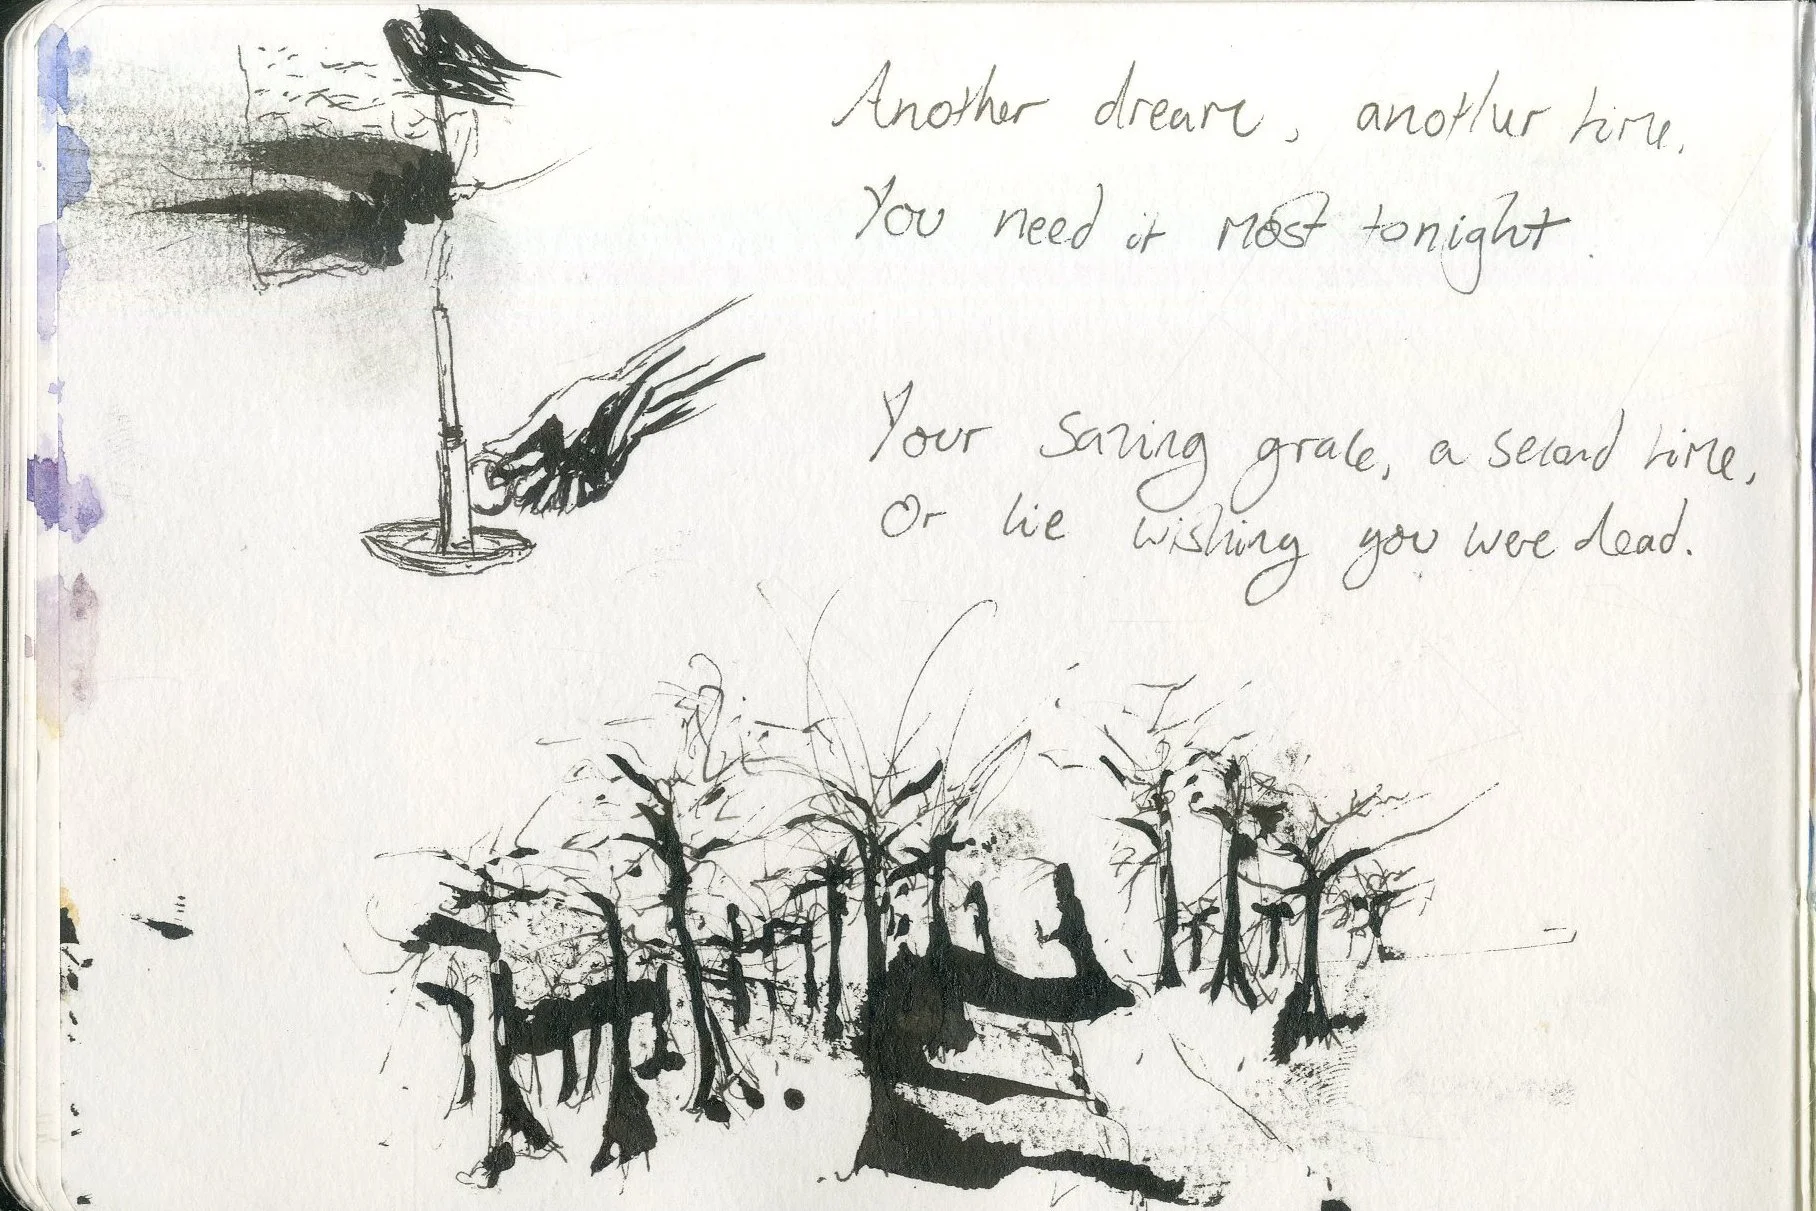 Another dream, another time.
You need it most tonight.
Your saving grace, a second time,
Or lie wishing you were dead.